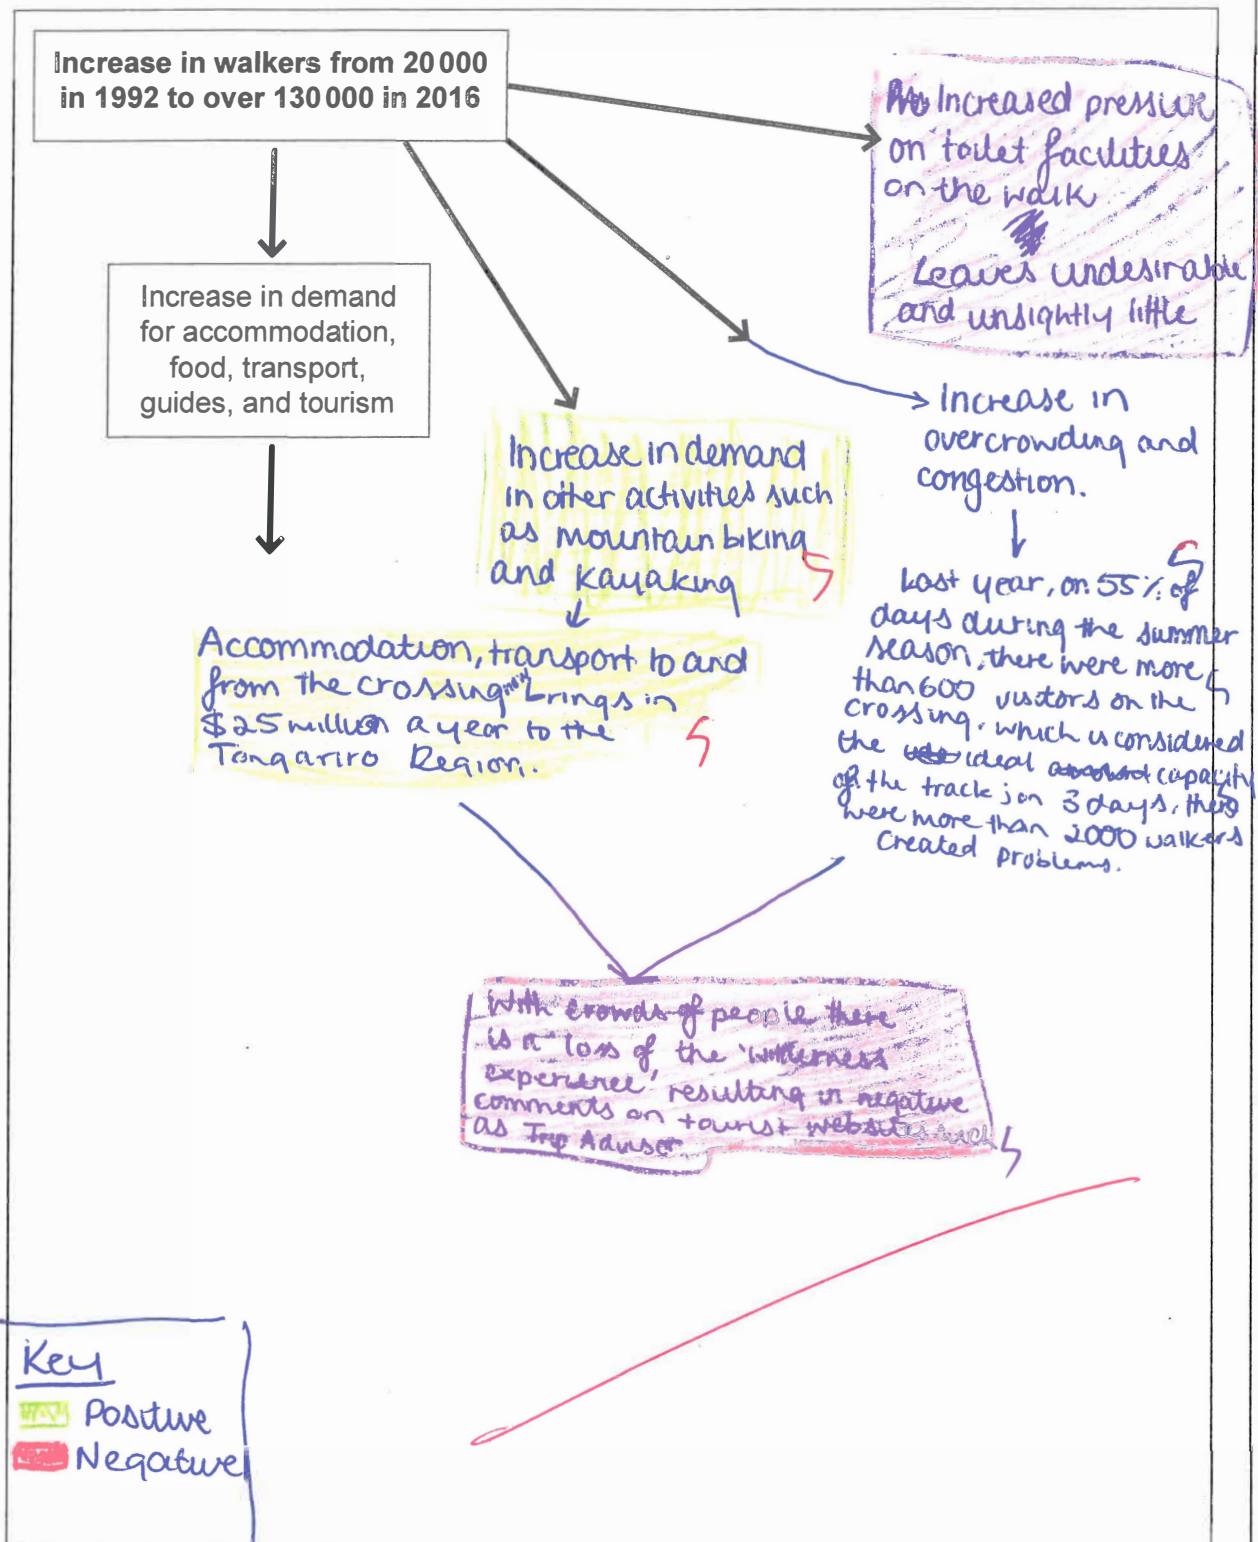 Increase in walkers from 20 000
in 1992 to over 130 000 in 2016
Increased pressure
on toilet facilities
on the walk
Leaves undesirable
and unsightly little
Increase in demand
for accommodation,
food, transport,
guides, and tourism
Increase in demand
in other activities such
as mountain biking
and kayaking
Increase in
overcrowding and
congestion.
Last year, on 55% of
days during the summer
season, there were more
than 600 visitors on the
crossing. which is considered
the ideal capacity
of the track; on 3 days, there
were more than 2000 walkers
created problems.
Accommodation, transport to and
from the crossing brings in
$25 million a year to the
Tongariro Region.
With crowds of people there
is a loss of the 'wilderness
experience', resulting in negative
comments on tourist websites such
as Trip Advisor
Key
Positive
Negative